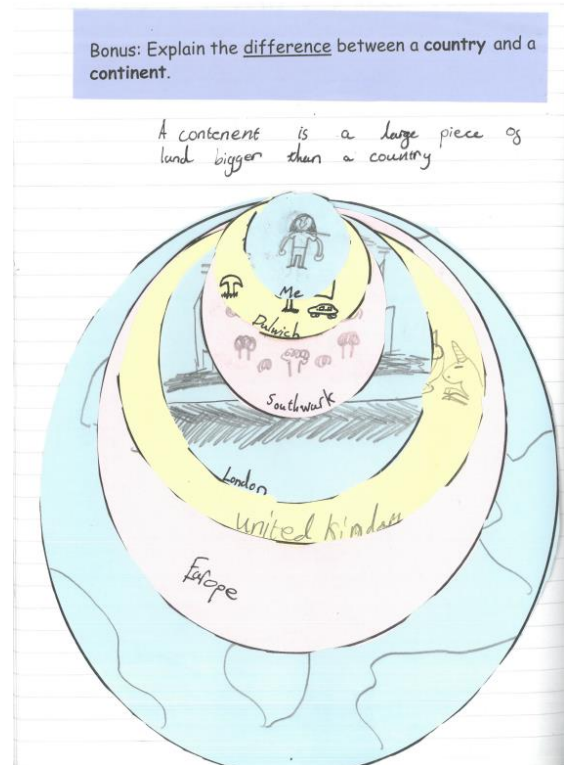 Bonus: Explain the difference between a country and a
continent.
A contenent is a large piece of
land bigger than a country
Me
Dulwich
Southwark
London
United kindom
Europe